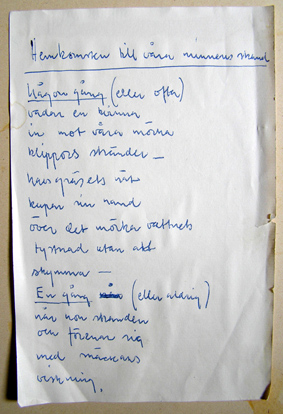 Hemkomsten till våra minnens strand
Någon gång (eller ofta)
vadar en kvinna
in mot våra mörka
klippors stränder –
havsgräsets
kupar sin hand
över det mörka vattnets
tystnad utan att
skymma –
En gång (eller aldrig)
når hon stranden
och förenar sig
med
viskning.